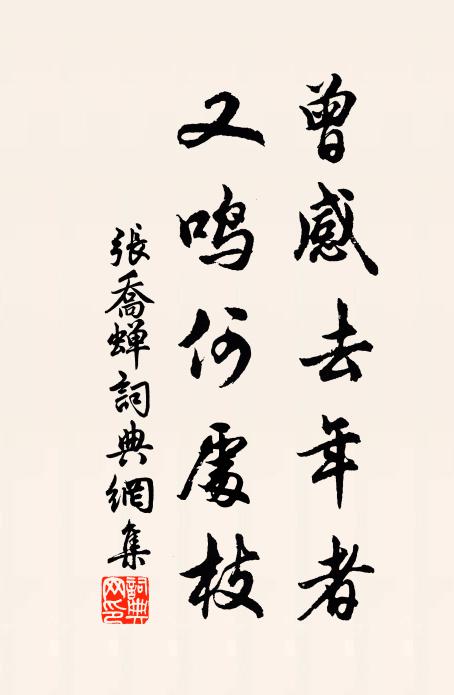 曾感去年者
又鸣何處枝
張喬蟬詞典網集
詞典网印